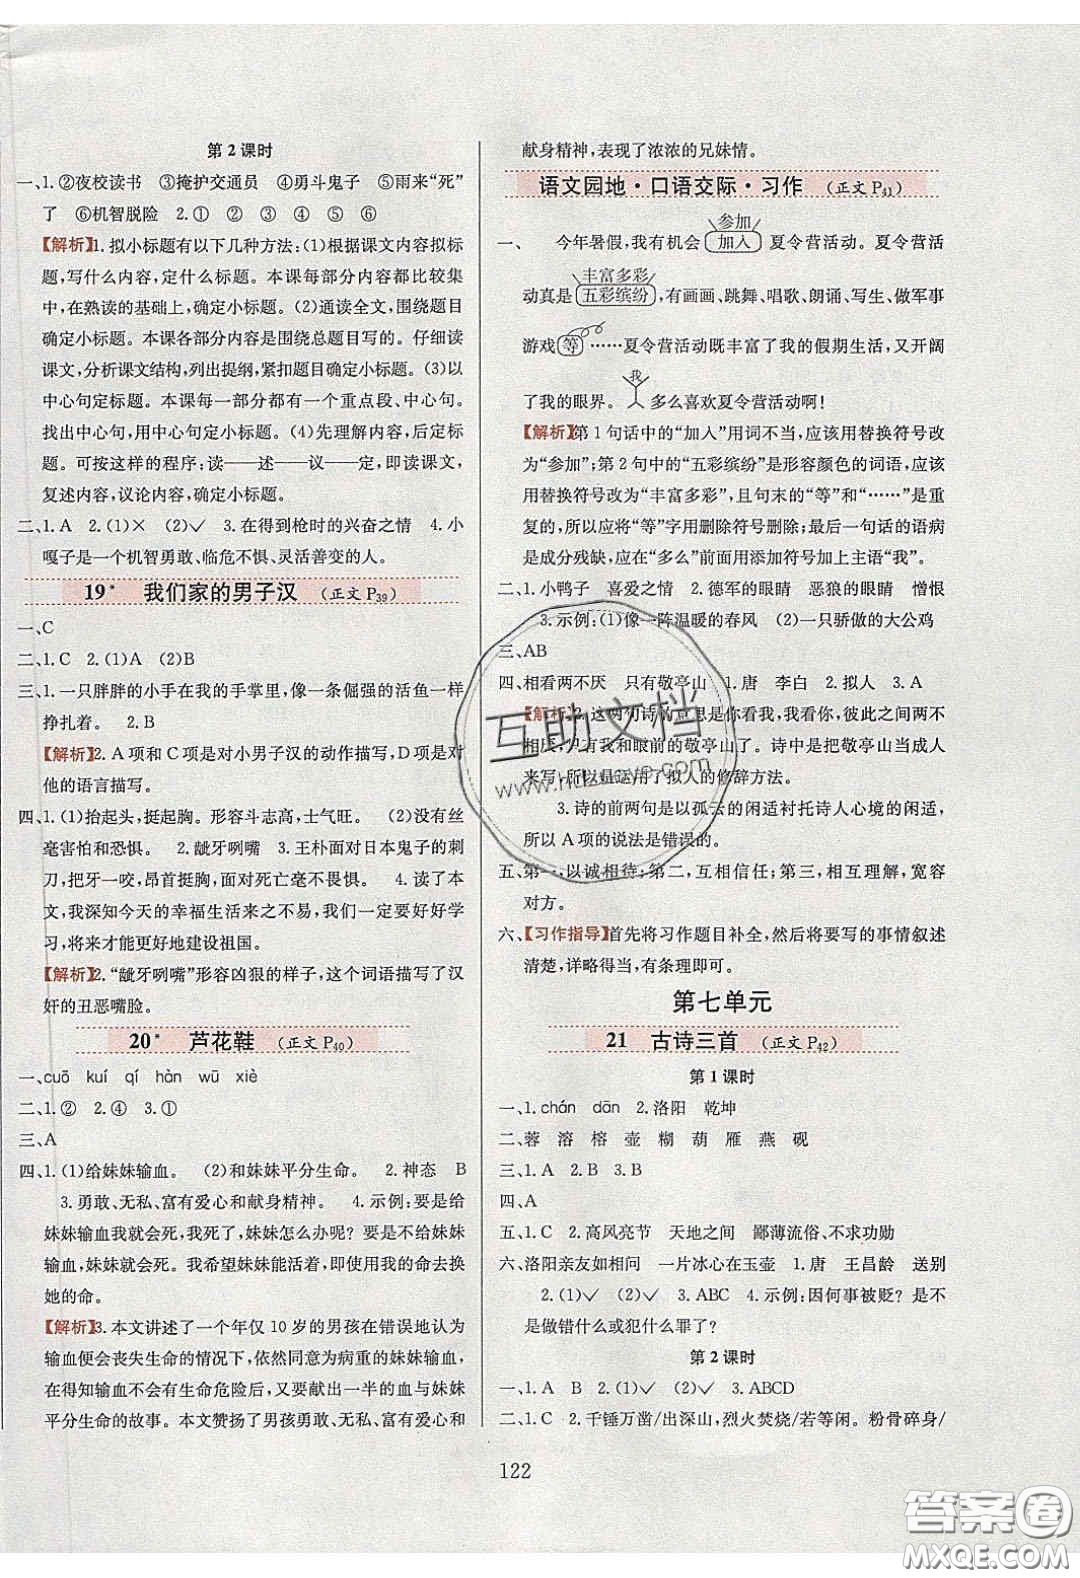 第2课时
一、1.②夜校读书 ③掩护交通员 ④勇斗鬼子 ⑤雨来“死”
了 ⑥机智脱险 2.①②③④⑤⑥
【解析】1.拟小标题有以下几种方法:(1)根据课文内容拟标
题,写什么内容,定什么标题。本课每部分内容都比较集
中,在熟读的基础上,确定小标题。(2)通读全文,围绕题目
确定小标题。本课各部分内容是围绕总题目写的。仔细读
课文,分析课文结构,列出提纲,紧扣题目确定小标题。(3)以
中心句定标题。本课每一部分都有一个重点段、中心句。
找出中心句,用中心句定标题。(4)先理解内容,后归纳标
题。可按这样的程序:读——述——议——定,即读课文,
复述内容,议论内容,确定小标题。
二、1.A 2.(1)× (2)✓ 3.在得到枪时的兴奋之情 4.小
嘎子是一个机智勇敢、临危不惧、灵活善变的人。
19* 我们家的男子汉 (正文P39)
一、C
二、1.C 2.(1)A (2)B
三、1.一只胖胖的小手在我的手掌里,像一条倔强的活鱼一样
挣扎着。 2.B
【解析】2.A项和C项是对小男子汉的动作描写,D项是对
他的语言描写。
四、1.(1)抬起头,挺起胸。形容斗志高,士气旺。 (2)没有丝
毫害怕和恐惧。 2.龇牙咧嘴 3.王朴面对日本鬼子的刺
刀,把牙一咬,昂首挺胸,面对死亡毫不畏惧。 4.读了本
文,我深知今天的幸福生活来之不易,我们一定要好好学
习,将来才能更好地建设祖国。
【解析】2.“龇牙咧嘴”形容凶狠的样子,这个词语描写了汉
奸的丑恶嘴脸。
20* 芦花鞋 (正文P40)
一、cuō kuí qí hàn wū xiè
二、1.② 2.④ 3.①
三、A
四、1.(1)给妹妹输血。 (2)和妹妹平分生命。 2.神态 B
3.勇敢、无私、富有爱心和献身精神。 4.示例:要是给
妹妹输血我就会死,我死了,妹妹怎么办呢?要是不给妹妹
输血,妹妹就会死。我希望妹妹能活着,即使用我的命去换
她的命。
【解析】3.本文讲述了一个年仅10岁的男孩在错误地认为
输血便会丧失生命的情况下,依然同意为病重的妹妹输血,
在得知输血不会有生命危险后,又献出一半的血与妹妹
平分生命的故事。本文赞扬了男孩勇敢、无私、富有爱心和
献身精神,表现了浓浓的兄妹情。
语文园地·口语交际·习作 (正文P41)
参加
一、 今年暑假,我有机会加入夏令营活动。夏令营活
丰富多彩
动真是五彩缤纷,有画画、跳舞、唱歌、朗诵、写生、做军事
游戏等……夏令营活动既丰富了我的假期生活,又开阔
我
了我的眼界。 多么喜欢夏令营活动啊!
【解析】第1句话中的“加入”用词不当,应该用替换符号改
为“参加”;第2句中的“五彩缤纷”是形容颜色的词语,应该
用替换符号改为“丰富多彩”,且句末的“等”和“……”是重
复的,所以应将“等”字用删除符号删除;最后一句话的语病
是成分残缺,应在“多么”前面用添加符号加上主语“我”。
二、1.小鸭子 喜爱之情 2.德军的眼睛 恶狼的眼睛 憎恨
3.示例:(1)像一阵温暖的春风 (2)一只骄傲的大公鸡
三、AB
四、相看两不厌 只有敬亭山 1.唐 李白 2.拟人 3.A
【解析】2.这两句诗的意思是你看我,我看你,彼此之间两不
相厌,只有我和眼前的敬亭山了。诗中是把敬亭山当成人
来写,所以是运用了拟人的修辞方法。
3.诗的前两句是以孤云的闲适衬托诗人心境的闲适,
所以A项的说法是错误的。
五、第一,以诚相待;第二,互相信任;第三,相互理解,宽容
对方。
六、【习作指导】首先将习作题目补全,然后将要写的事情叙述
清楚,详略得当,有条理即可。
第七单元
21 古诗三首 (正文P42)
第1课时
一、1.chán dān 2.洛阳 乾坤
二、蓉 溶 榕 壶 糊 葫 雁 燕 砚
三、1.A 2.B 3.B
四、A
五、1.C 2.高风亮节 天地之间 鄙薄流俗、不求功勋
六、洛阳亲友如相问 一片冰心在玉壶 1.唐 王昌龄 送别
2.(1)✓ (2)✓ 3.ABC 4.示例:因何事被贬?是不
是做错什么或犯什么罪了?
第2课时
一、1.A B 2.(1)✓ (2)✓ 3.ABCD
二、1.C 2.千锤万凿/出深山,烈火焚烧/若等闲。粉骨碎身/
122
互助文档
答案圈
MXQE.COM